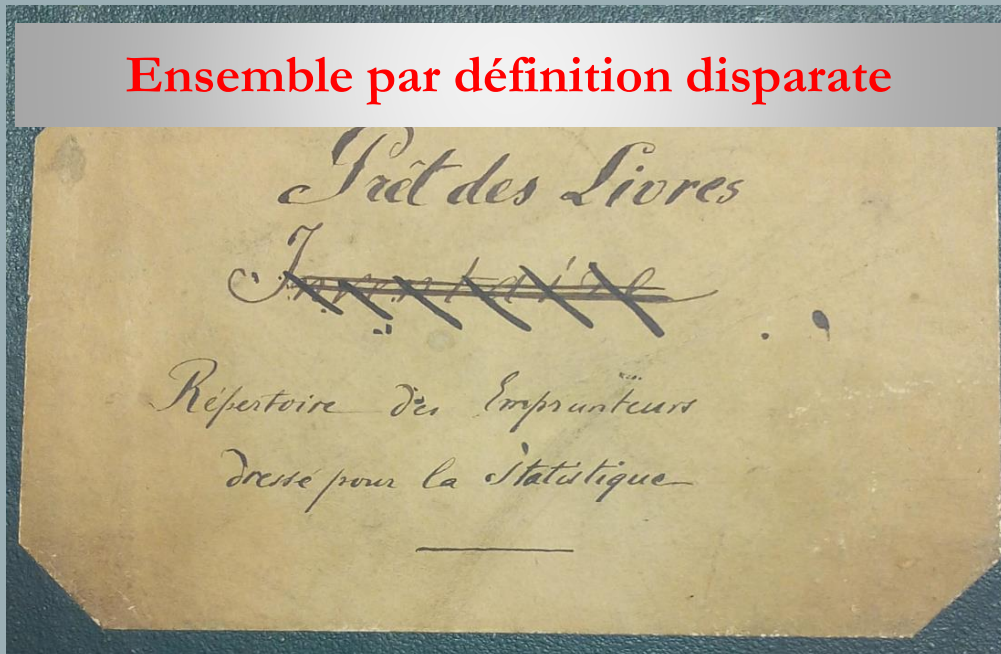 Ensemble par définition disparate
Prêt des Livres
Inventaire
Répertoire des Emprunteurs
dressé pour la Statistique